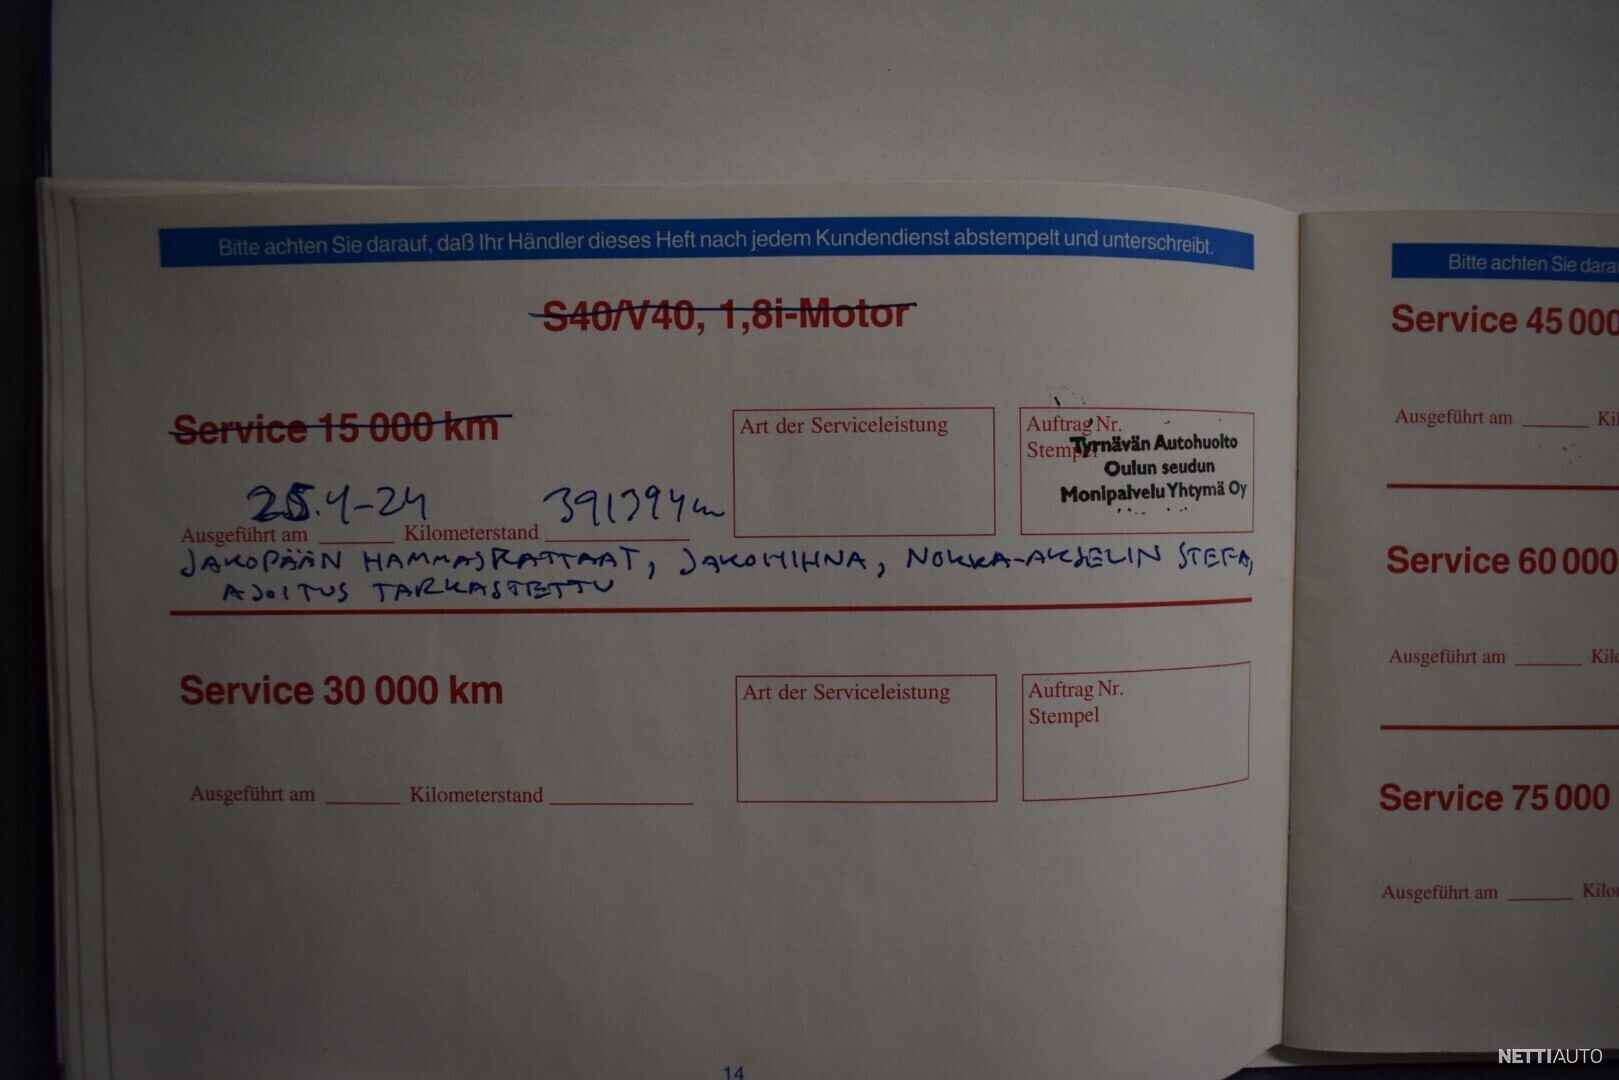 Bitte achten Sie darauf, daß Ihr Händler dieses Heft nach jedem Kundendienst abstempelt und unterschreibt.
S40/V40, 1,8i-Motor
Service 15 000 km
Art der Serviceleistung
Auftrag Nr.
Stempel
Tyrnävän Autohuolto
Oulun seudun
Monipalvelu Yhtymä Oy
25.4-24
391394 km
Ausgeführt am
Kilometerstand
JAKOPÄÄN HAMMASRATTAAT, JAKOHIHNA, NOKKA-AKSELIN STEFA,
AJOITUS TARKASTETTU
Service 30 000 km
Art der Serviceleistung
Auftrag Nr.
Stempel
Ausgeführt am
Kilometerstand
14
Bitte achten Sie dara
Service 45 000
Ausgeführt am
Ki
Service 60 000
Ausgeführt am
Kil
Service 75 000
Ausgeführt am
Kilo
NETTIAUTO